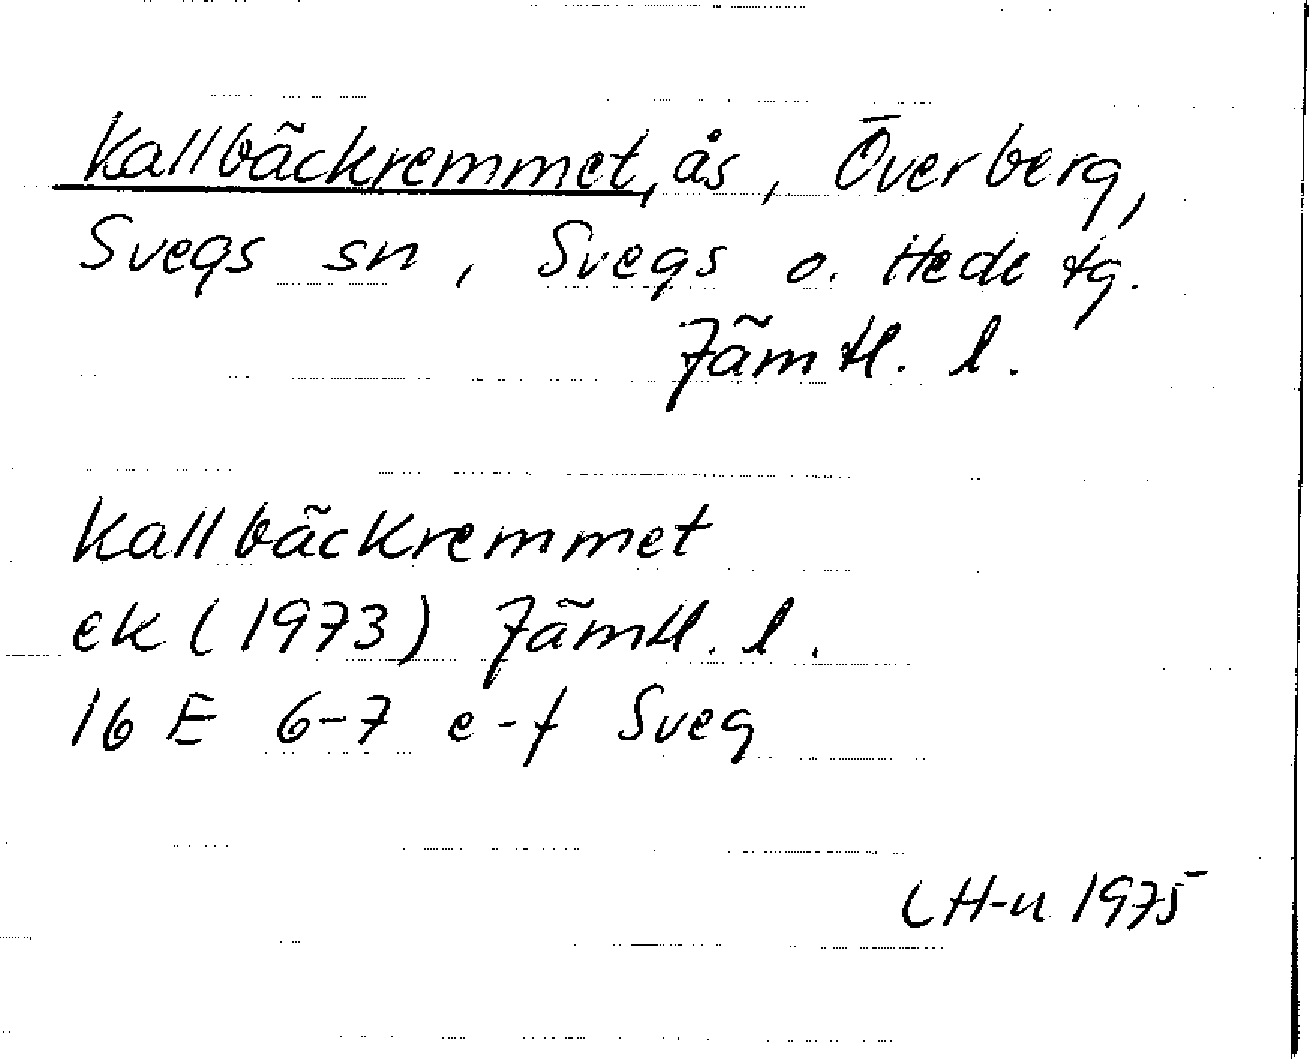 Kallbäckremmet, ås, Överberg,
Svegs sn, Svegs o. Hede tg.
Jämtl. l.
Kallbäckremmet
ek (1973) Jämtl. l.
16 E 6-7 e-f Sveg
LH-n 1975